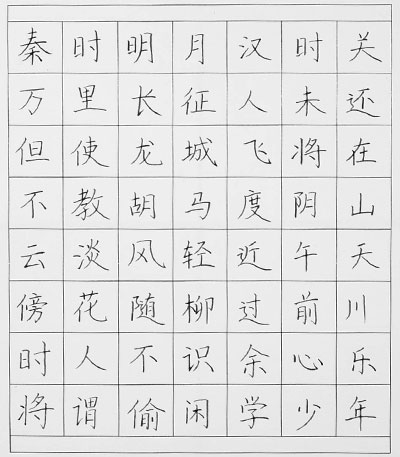 秦时明月汉时关
万里长征人未还
但使龙城飞将在
不教胡马度阴山
云淡风轻近午天
傍花随柳过前川
时人不识余心乐
将谓偷闲学少年